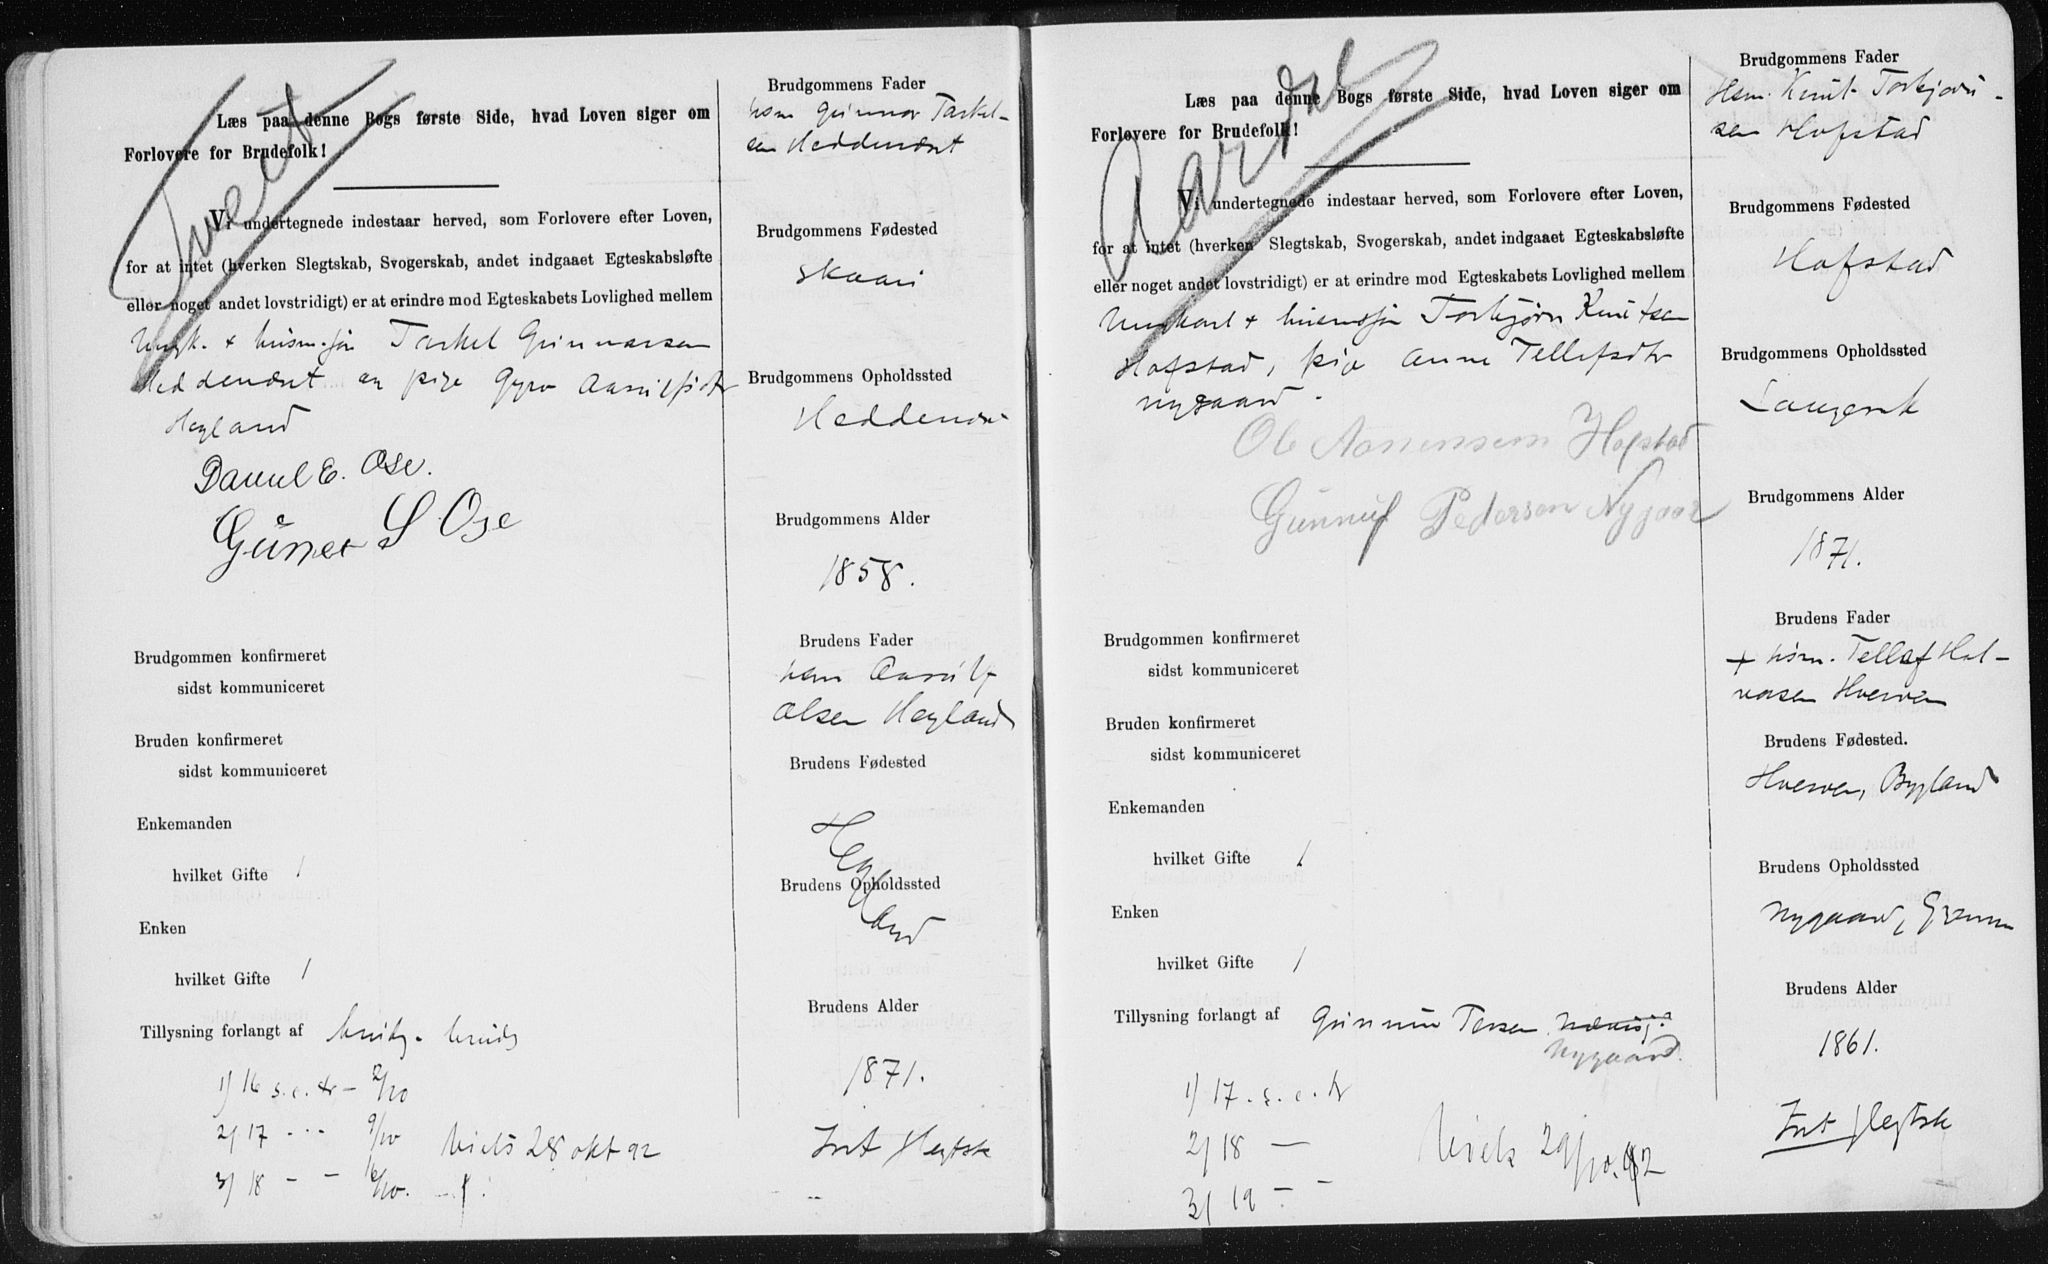 Læs paa denne Bogs første Side, hvad Loven siger om
Forlovere for Brudefolk!
Vi undertegnede indestaar herved, som Forlovere efter Loven,
for at intet (hverken Slegtskab, Svogerskab, andet indgaaet Egteskabsløfte
eller noget andet lovstridigt) er at erindre mod Egteskabets Lovlighed mellem
Ungk. + husm.søn Tarkel Gunnarsen
Heddenæst en pige Gyro Aasulfsdtr
Hegland
Daniel E. Ose.
Gunner S Ose
Brudgommen konfirmeret
sidst kommuniceret
Bruden konfirmeret
sidst kommuniceret
Enkemanden
hvilket Gifte 1
Enken
hvilket Gifte 1
Tillysning forlangt af
1) 16 s.e.tr – 2/10
2) 17 - - - 9/10
3) 18 - - 16/10.
Viels 28 okt 92
Brudgommens Fader
husm Gunnar Tarkel-
sen Heddenæst
Brudgommens Fødested
Skaari
Brudgommens Opholdssted
Heddenæs
Brudgommens Alder
1858.
Brudens Fader
husm Aasulf
Olsen Hegland
Brudens Fødested
Hegland
Brudens Opholdssted
Brudens Alder
1871.
Int slegtsk
Aardal
Læs paa denne Bogs første Side, hvad Loven siger om
Forlovere for Brudefolk!
Vi undertegnede indestaar herved, som Forlovere efter Loven,
for at intet (hverken Slegtskab, Svogerskab, andet indgaaet Egteskabsløfte
eller noget andet lovstridigt) er at erindre mod Egteskabets Lovlighed mellem
Ungkarl + husmsøn Torbjørn Knutsen
Hofstad, pige Anne Tellefsdtr
Nygaard.
Ole Aanensen Hofstad
Gunnuf Pedersen Nygaar
Brudgommen konfirmeret
sidst kommuniceret
Bruden konfirmeret
sidst kommuniceret
Enkemanden
hvilket Gifte 1
Enken
hvilket Gifte 1
Tillysning forlangt af Gunnuv Tersen
Nygaard.
1) 17. s.e.tr
2) 18 —
3) 19 - -
Viels 29/10.92
Brudgommens Fader
Hsm. Knut Torbjørn-
sen Hofstad
Brudgommens Fødested
Hofstad
Brudgommens Opholdssted
Langerak
Brudgommens Alder
1871.
Brudens Fader
+ husm. Tellef Hal-
vorsen Hverven
Brudens Fødested.
Hverven, Bygland
Brudens Opholdssted
Nygaard, Grænn
Brudens Alder
1861.
Int slegtsk